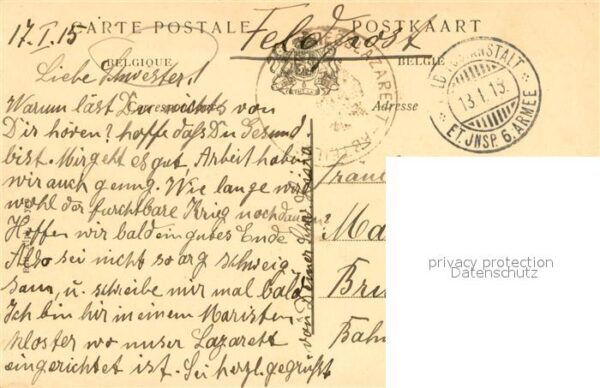 CARTE POSTALE POSTKAART
17.I.15 Feldpost
BELGIQUE BELGIË
Liebe Schwester!
Correspondance Adresse
Warum läst Du nichts von
Dir hören? hoffe daß Du Gesund
bist. Mir geht es gut, Arbeit haben
wir auch genug. Wie lange wird
wohl der furchtbare Krieg noch dauern?
Hoffen wir bald ein gutes Ende
Also sei nicht so arg schweig
sam, u. schreibe mir mal bald.
Ich bin hir in einem Maristen
kloster wo unser Lazarett
eingerichtet ist. Sei herzl. gegrüßt
von Deiner
LAZARETT
FELDPOSTANSTALT
13.1.15.
ET. JNSP. 6. ARMEE
Frau
Ma
Bru
Bah
privacy protection
Datenschutz